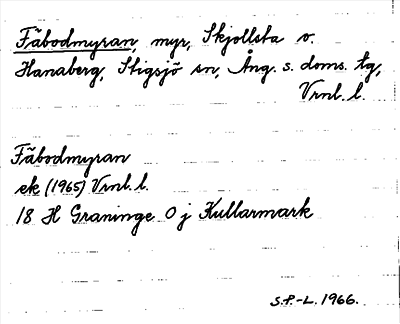 Fäbodmyran, myr, Skjollsta o.
Hanaberg, Stigsjö sn, Ång. s. doms. tg,
Vrnl. l.
Fäbodmyran
ek (1965) Vrnl. l.
18 H Graninge 0 j Kullarmark
S.P.-L. 1966.